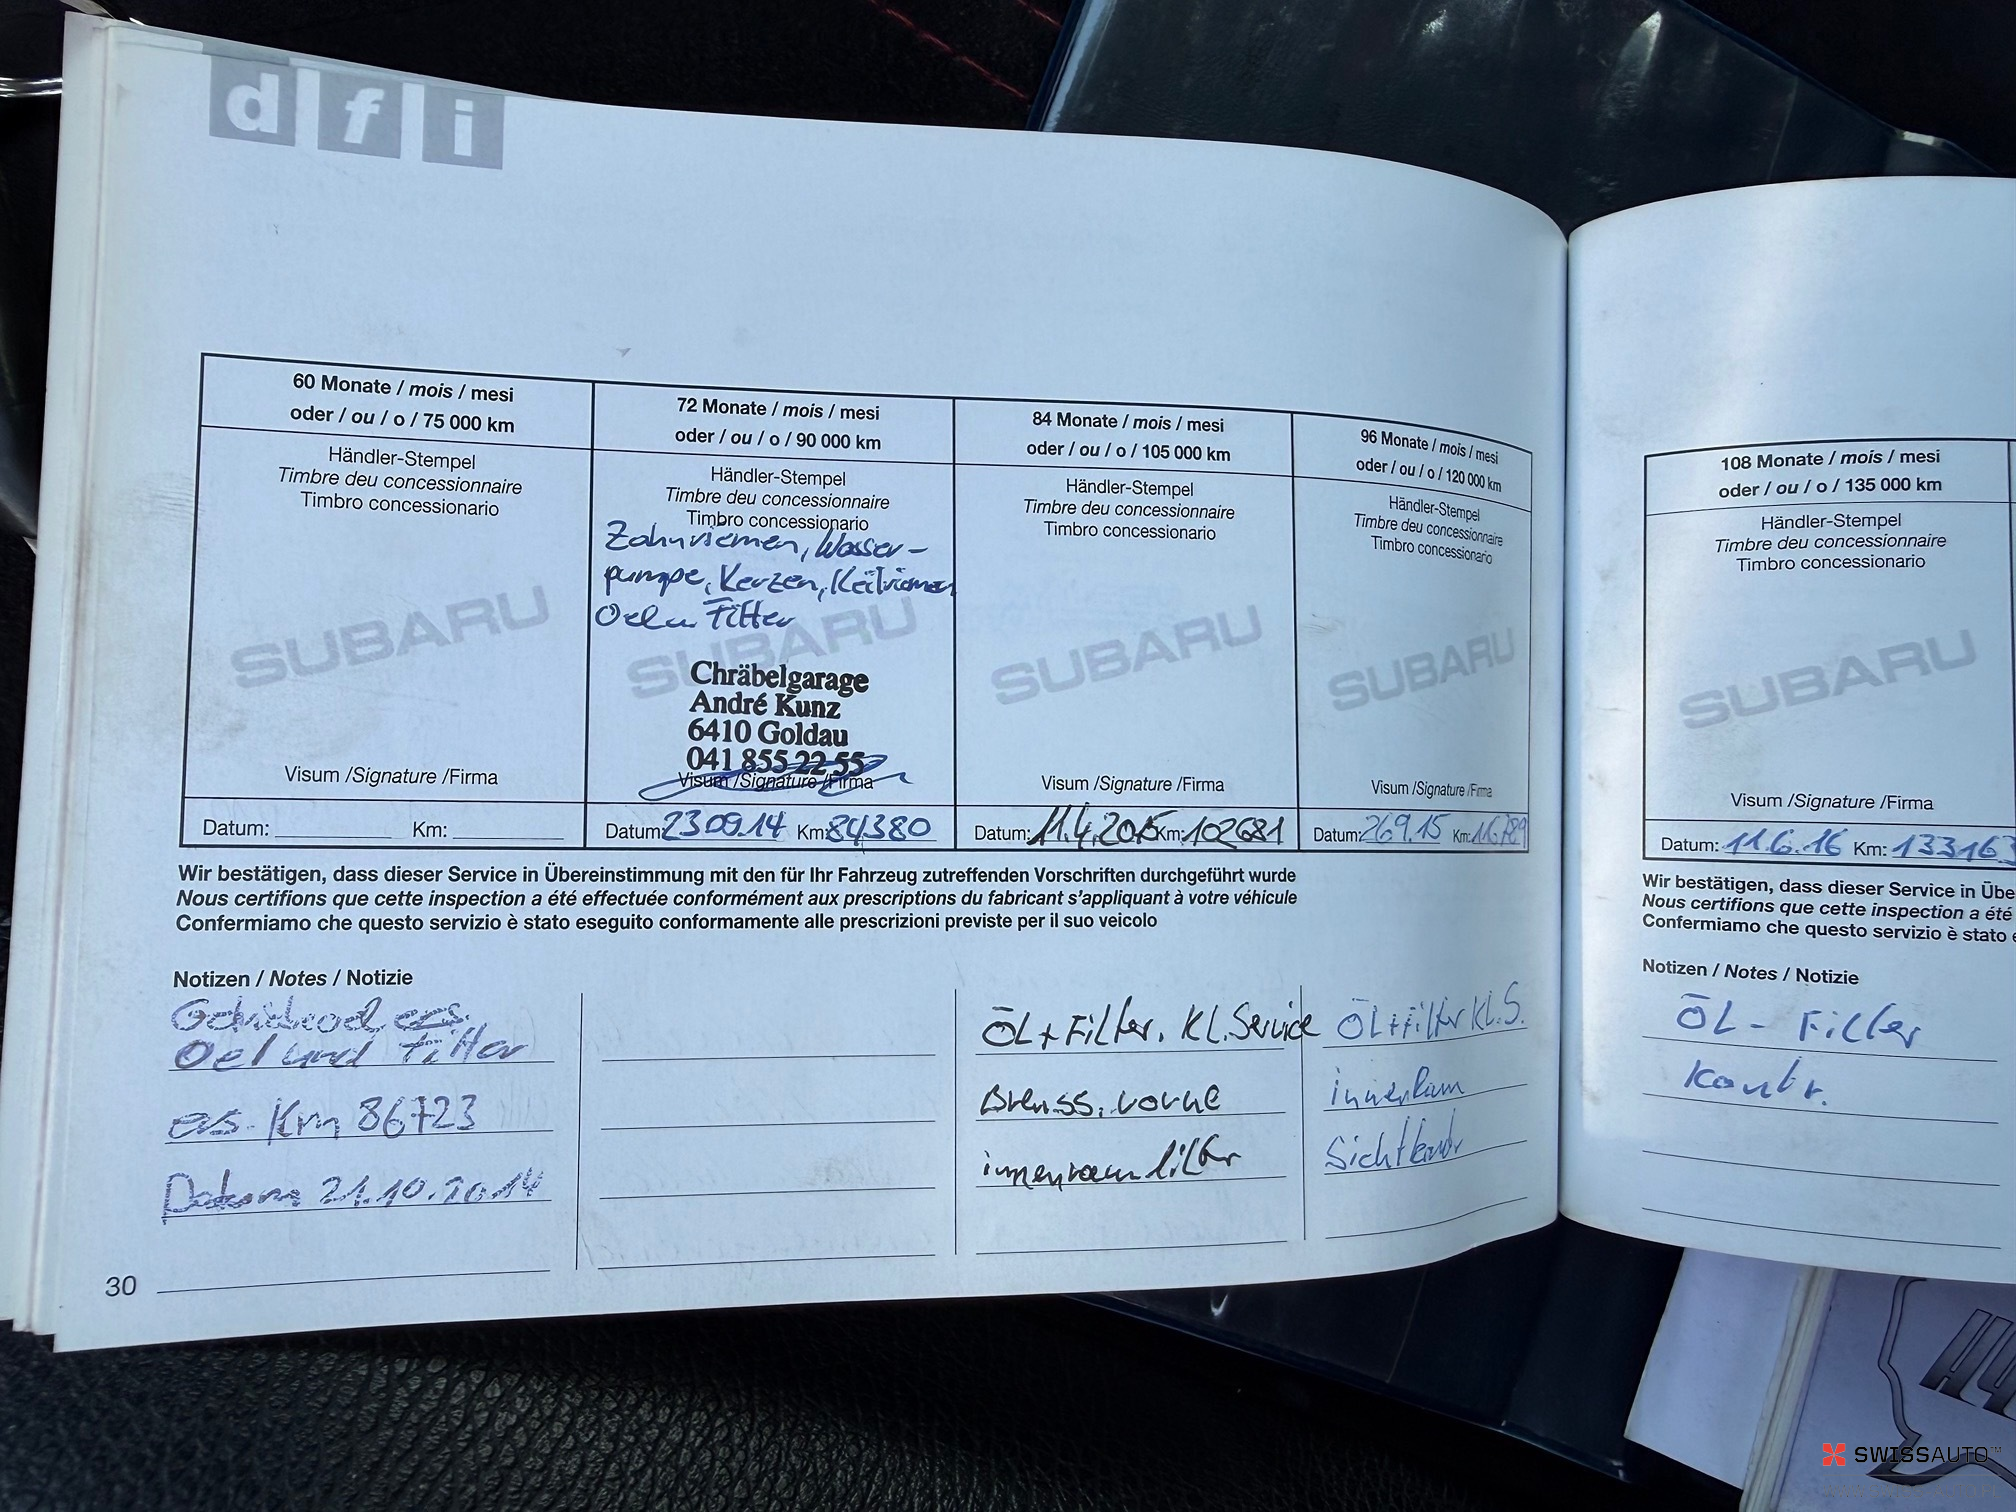 dfi
60 Monate / mois / mesi
oder / ou / o / 75 000 km
Händler-Stempel
Timbre deu concessionnaire
Timbro concessionario
SUBARU
Visum /Signature /Firma
Datum: Km:
72 Monate / mois / mesi
oder / ou / o / 90 000 km
Händler-Stempel
Timbre deu concessionnaire
Timbro concessionario
Zahnriemen, Wasser-
pumpe, Kerzen, Keilriemen
Oel u Filter
SUBARU
Chräbelgarage
André Kunz
6410 Goldau
041 855 22 55
Visum /Signature /Firma
Datum: 23 09.14 Km: 84380
84 Monate / mois / mesi
oder / ou / o / 105 000 km
Händler-Stempel
Timbre deu concessionnaire
Timbro concessionario
SUBARU
Visum /Signature /Firma
Datum: 11.4.2015 Km: 102681
96 Monate / mois / mesi
oder / ou / o / 120 000 km
Händler-Stempel
Timbre deu concessionnaire
Timbro concessionario
SUBARU
Visum /Signature /Firma
Datum: 26.9.15 Km:
Wir bestätigen, dass dieser Service in Übereinstimmung mit den für Ihr Fahrzeug zutreffenden Vorschriften durchgeführt wurde
Nous certifions que cette inspection a été effectuée conformément aux prescriptions du fabricant s'appliquant à votre véhicule
Confermiamo che questo servizio è stato eseguito conformamente alle prescrizioni previste per il suo veicolo
Notizen / Notes / Notizie
Oel und Filter
Km 86723
Datum 21.10.2014
ÖL + Filter. KL. Service
vorne
innenraumfilter
ÖL + Filter KL. S.
30
108 Monate / mois / mesi
oder / ou / o / 135 000 km
Händler-Stempel
Timbre deu concessionnaire
Timbro concessionario
SUBARU
Visum /Signature /Firma
Datum: 11.6.16 Km: 133163
Wir bestätigen, dass dieser Service in Übe
Nous certifions que cette inspection a été
Confermiamo che questo servizio è stato e
Notizen / Notes / Notizie
ÖL - Filter
Kontr.
SWISSAUTO™